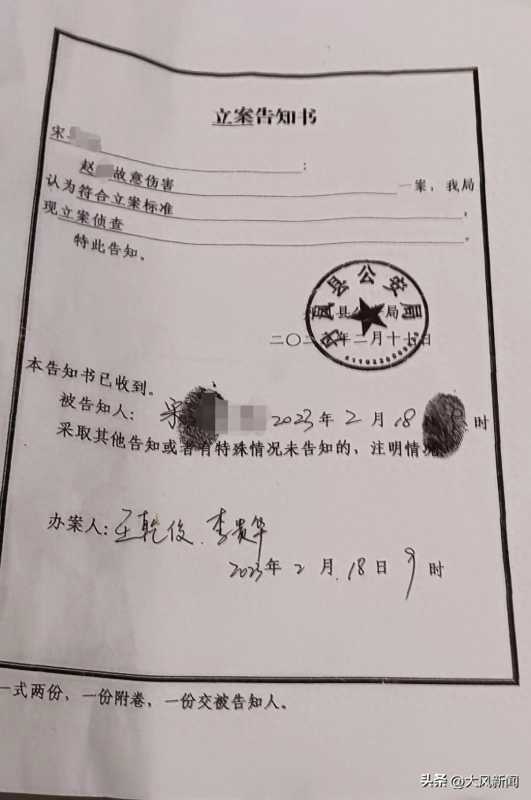 立案告知书
宋
:
赵 故意伤害 一案，我局
认为符合立案标准，
现立案侦查。
特此告知。
县公安局
县 局
二〇二 年二月十七日
本告知书已收到。
被告知人：宋 2023年2月18 9时
采取其他告知或者有特殊情况未告知的，注明情况
办案人：王乾俊、李贵华
2023年2月18日9时
一式两份，一份附卷，一份交被告知人。
头条@大风新闻